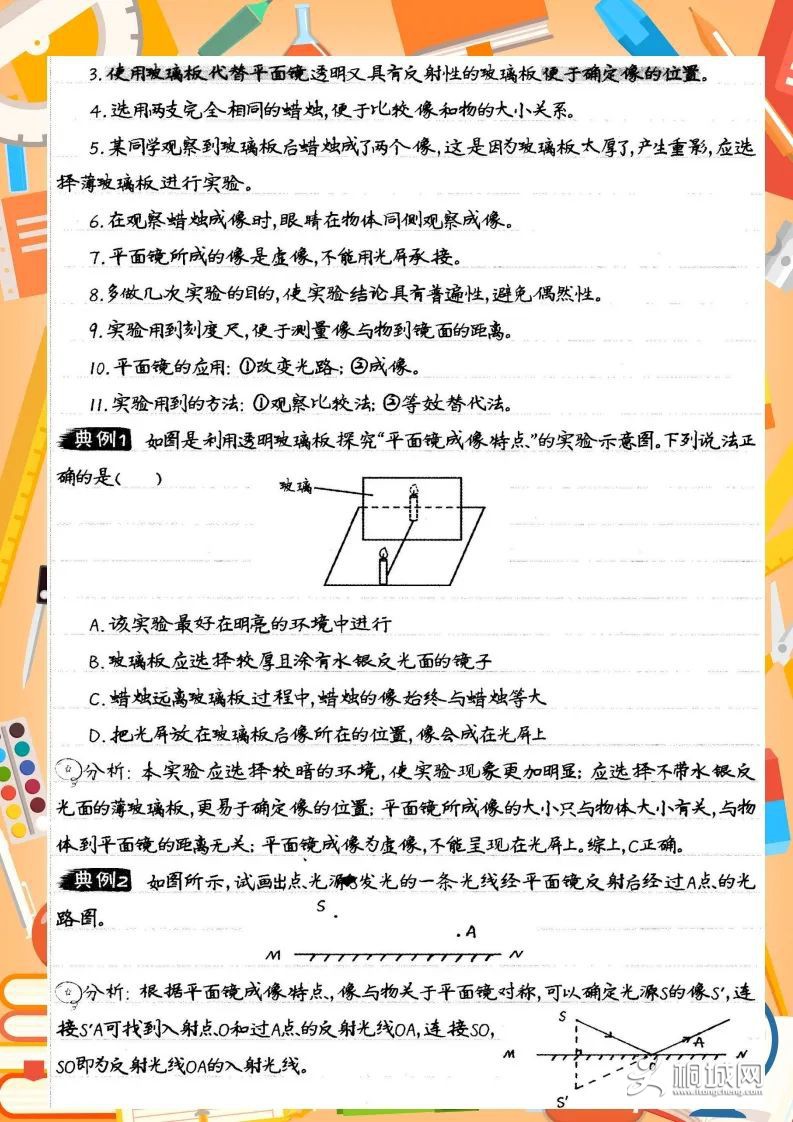 3.使用玻璃板代替平面镜透明又具有反射性的玻璃板便于确定像的位置。
4.选用两支完全相同的蜡烛,便于比较像和物的大小关系。
5.某同学观察到玻璃板后蜡烛成了两个像,这是因为玻璃板太厚了,产生重影,应选
择薄玻璃板进行实验。
6.在观察蜡烛成像时,眼睛在物体同侧观察成像。
7.平面镜所成的像是虚像,不能用光屏承接。
8.多做几次实验的目的,使实验结论具有普遍性,避免偶然性。
9.实验用到刻度尺,便于测量像与物到镜面的距离。
10.平面镜的应用:①改变光路;②成像。
11.实验用到的方法:①观察比较法;②等效替代法。
典例1 如图是利用透明玻璃板探究“平面镜成像特点”的实验示意图。下列说法正
确的是( )
玻璃
A.该实验最好在明亮的环境中进行
B.玻璃板应选择较厚且涂有水银反光面的镜子
C.蜡烛远离玻璃板过程中,蜡烛的像始终与蜡烛等大
D.把光屏放在玻璃板后像所在的位置,像会成在光屏上
分析:本实验应选择较暗的环境,使实验现象更加明显;应选择不带水银反
光面的薄玻璃板,更易于确定像的位置;平面镜所成像的大小只与物体大小有关,与物
体到平面镜的距离无关;平面镜成像为虚像,不能呈现在光屏上。综上,C正确。
典例2 如图所示,试画出点光源发光的一条光线经平面镜反射后经过A点的光
路图。
S
A
M N
分析:根据平面镜成像特点,像与物关于平面镜对称,可以确定光源S的像S′,连
接S′A可找到入射点O和过A点的反射光线OA,连接SO,
SO即为反射光线OA的入射光线。
S
A
M O N
S′
桐城网
itongcheng.com